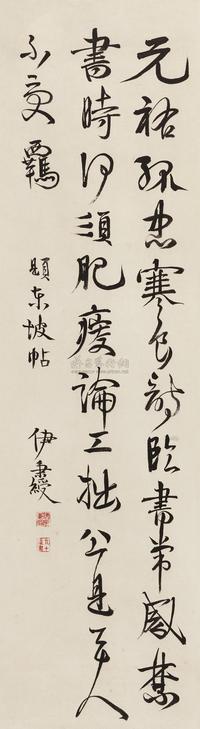 元祐孤忠寒食詩臨書常感禁
書時何須肥瘦論工拙公是天人
不受羈 題東坡帖 伊秉綬